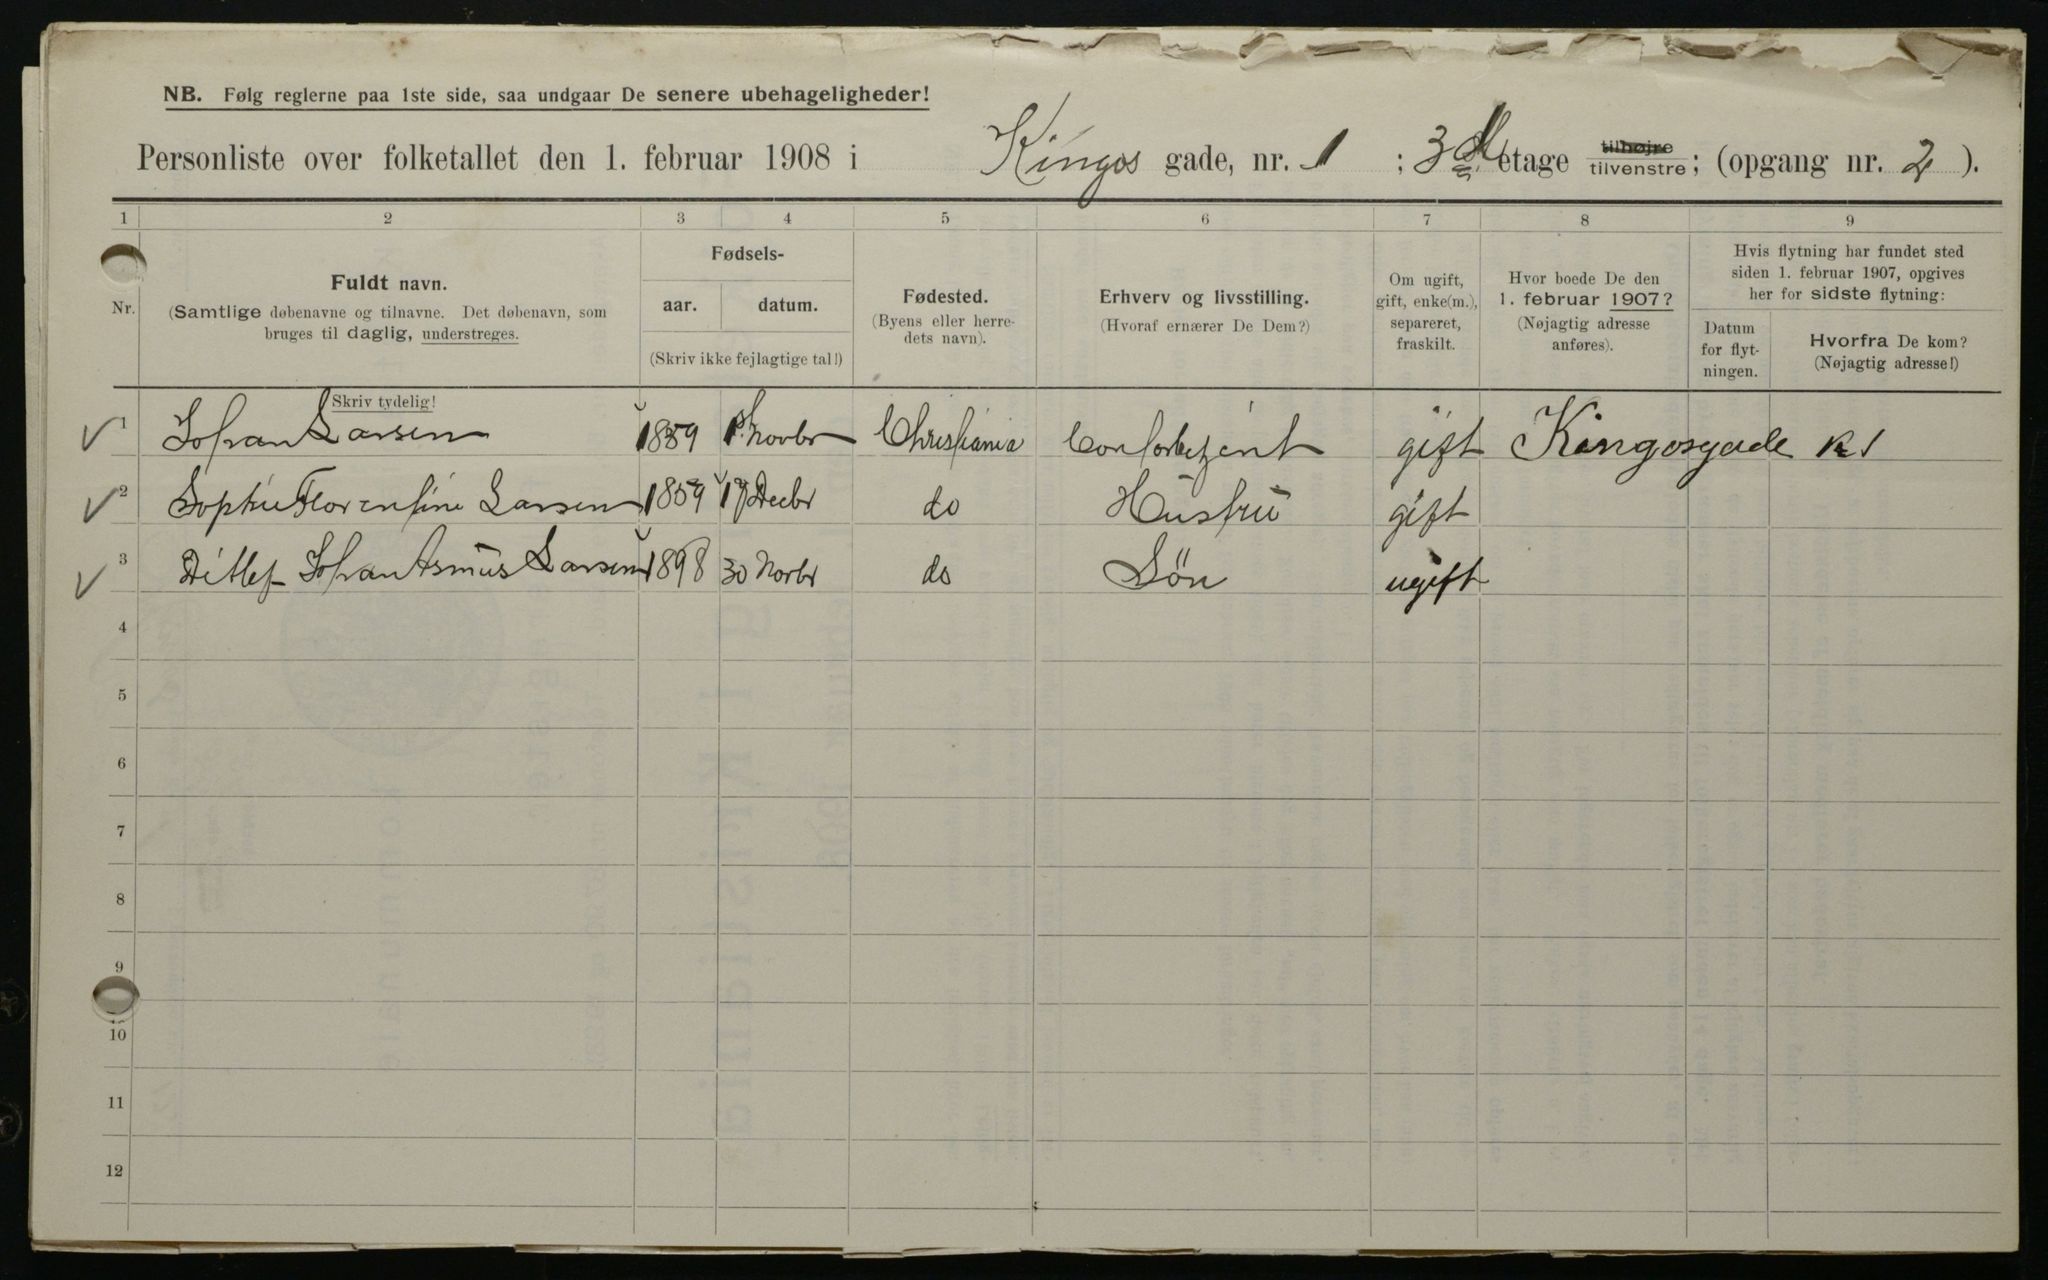 NB. Følg reglerne paa 1ste side, saa undgaar De senere ubehageligheder!
Personliste over folketallet den 1. februar 1908 i Kingos gade, nr. 1 ; 3 etage tilhøjre tilvenstre; (opgang nr. 2 ).
1 2 3 4 5 6 7 8 9
Nr.
Fuldt navn.
(Samtlige døbenavne og tilnavne. Det døbenavn, som
bruges til daglig, understreges.
Skriv tydelig!
Fødsels-
aar. datum.
(Skriv ikke fejlagtige tal!)
Fødested.
(Byens eller herre-
dets navn).
Erhverv og livsstilling.
(Hvoraf ernærer De Dem?)
Om ugift,
gift, enke(m.),
separeret,
fraskilt.
Hvor boede De den
1. februar 1907?
(Nøjagtig adresse
anføres).
Hvis flytning har fundet sted
siden 1. februar 1907, opgives
her for sidste flytning:
Datum
for flyt-
ningen.
Hvorfra De kom?
(Nøjagtig adresse!)
1 Johan Larsen 1859 1 Novbr Christiania gift Kingosgade 1
2 Sophie Florentine Larsen 1859 19 Decbr do Hustru gift
3 Ditlef Johan Asmus Larsen 1898 30 Novbr do Søn ugift
4
5
6
7
8
9
10
11
12